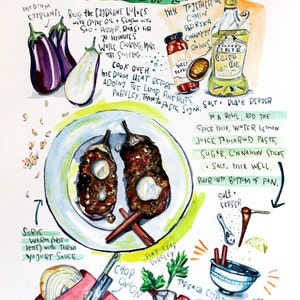 MEDIUM
EGGPLANTS
BRUSH THE EGGPLANT HALVES
WITH OLIVE OIL + SEASON WITH
SALT + PEPPER. ROAST FOR
20 MINUTES.
WHILE COOKING MAKE
THE STUFFING.
MIX TOGETHER IN
CUMIN
PAPRIKA
CINNAMON
ONIONS
OLIVE OIL
COOK OVER
MEDIUM HEAT
ADDING THE LAMB, PINE NUTS,
PARSLEY, TOMATO PASTE, SUGAR, SALT + BLACK PEPPER
IN A BOWL, ADD THE
SPICE MIX, WATER, LEMON
JUICE, TAMARIND PASTE,
SUGAR, CINNAMON STICKS
+ SALT. MIX WELL.
POUR INTO BOTTOM OF PAN.
SALT +
PEPPER
SERVE
WARM (NOT
HOT) WITH THEIR
YOGURT SAUCE.
FLAT LEAF
PARSLEY
CHOP
ONION